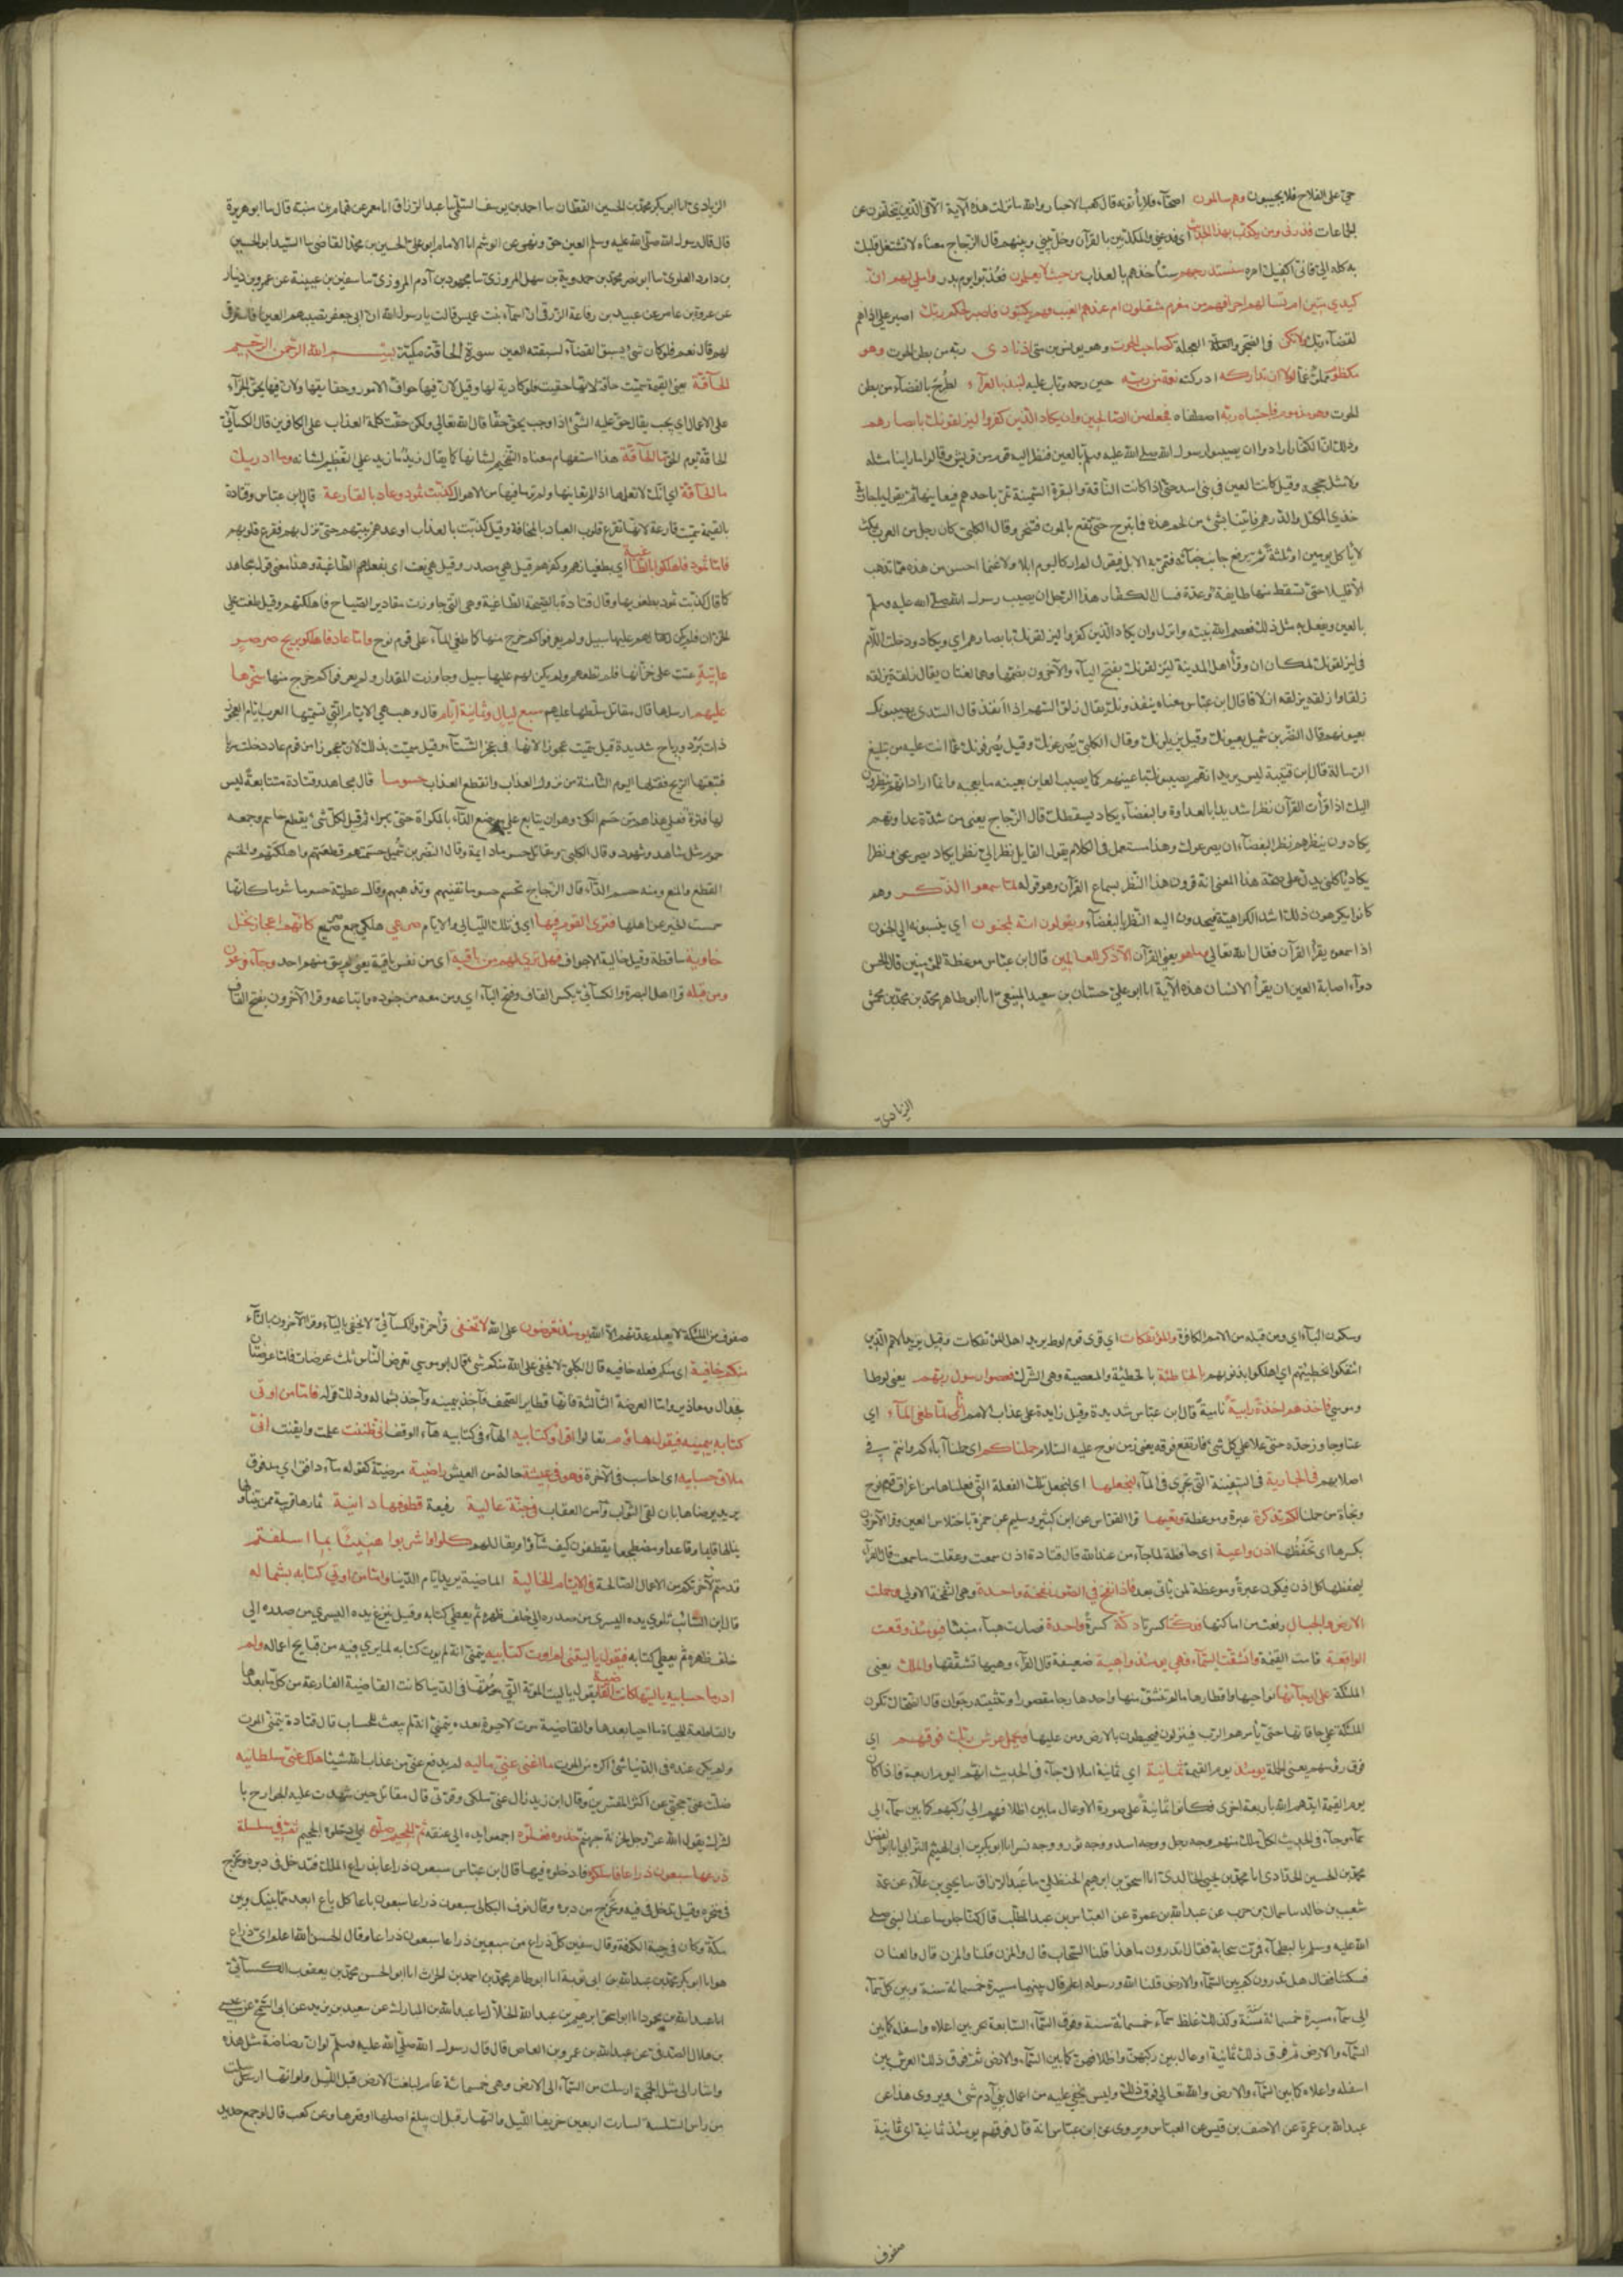 حي على الفلاح فلا يجيبون وهم سالمون اصحآء فلا يأتونه قال كعب الاحبار والله ما نزلت هذه الآية الا في الذين يتخلفون عن
الجماعات فذرنى ومن يكذب بهذا الحديث اى فدعني والمكذبين بالقرآن وخل بيني وبينهم قال الزجاج معناه لا تشتغل قلبك
به كله الي فانى اكفيك امره سنستدرجهم سنأخذهم بالعذاب من حيث لا يعلمون فعذبوا يوم بدر واملى لهم ان
كيدي متين ام تسألهم اجرا فهم من مغرم مثقلون ام عندهم الغيب فهم يكتبون فاصبر لحكم ربك اصبر على اذاهم
لقضآء ربك ولا تكن في الضجر والعجلة كصاحب الحوت وهو يونس بن متى اذ نادى ربه من بطن الحوت وهو
مكظوم مملو غما لولا ان تداركه ادركته نعمة من ربه حين رحمه وتاب عليه لنبذ بالعرآء لطرح بالفضآء من بطن
الحوت وهو مذموم فاجتباه ربه اصطفاه فجعله من الصالحين وان يكاد الذين كفروا ليزلقونك بابصارهم
وذلك ان الكفار ارادوا ان يصيبوا رسول الله صلى الله عليه وسلم بالعين فنظر اليه قوم من قريش وقالوا ما راينا مثله
ولا مثل حججه وقيل كانت العين في بنى اسد حتى اذا كانت الناقة والبقرة السمينة تمر باحدهم فيعاينها ثم يقول يا جارية
خذي المكتل والدرهم فاتينا بشئ من لحم هذه فما تبرح حتى تقع بالموت فتنحر وقال الكلبى كان رجل من العرب يمكث
لا يأكل يومين او ثلثة ثم يرفع جانب خبائه فتمر به الابل فيقول لم ار كاليوم ابلا ولا غنما احسن من هذه فما تذهب
الا قليلا حتى تسقط منها طايفة وعدة فسال الكفار هذا الرجل ان يصيب رسول الله صلى الله عليه وسلم
بالعين ويفعل به مثل ذلك فعصم الله نبيه وانزل وان يكاد الذين كفروا ليزلقونك بابصارهم اي ويكاد ودخلت اللام
في ليزلقونك لمكان ان وقرأ اهل المدينة ليزلقونك بفتح اليآء والآخرون بضمها وهما لغتان يقال زلقه يزلقه
زلقا وازلقه يزلقه ازلاقا قال ابن عباس معناه ينفذونك يقال زلق السهم اذا انفذ قال السدى يصيبونك
بعيونهم قال النضر بن شميل يعينونك وقيل يزيلونك وقال الكلبى يصرعونك وقيل يصرفونك عما انت عليه من تبليغ
الرسالة قال ابن قتيبة ليس يريد انهم يصيبونك باعينهم كما يصيب العاين بعينه ما يعجبه وانما اراد انهم ينظرون
اليك اذا قرأت القرآن نظرا شديدا بالعداوة والبغضآء يكاد يسقطك قال الزجاج يعنى من شدة عداوتهم
يكادون بنظرهم نظر البغضآء ان يصرعوك وهذا مستعمل فى الكلام يقول القايل نظر الى نظرا يكاد يصرعنى ونظرا
يكاد ياكلنى يدل على صحة هذا المعنى انه قرون هذا النظر بسماع القرآن وهو قوله لما سمعوا الذكر وهم
كانوا يكرهون ذلك اشد الكراهية فيحدون اليه النظر بالبغضآء ويقولون انه لمجنون اي ينسبونه الى الجنون
اذا سمعوه يقرأ القرآن فقال الله تعالى وما هو يعنى القرآن الا ذكر للعالمين قال ابن عباس موعظة للمؤمنين قال الحسن
دوآء اصابة العين ان يقرأ الانسان هذه الآية انا ابو علي حسان بن سعيد المنيعى انا ابو طاهر محمد بن محمد بن محمش
الزيادي
الزيادى انا ابو بكر محمد بن الحسين القطان نا احمد بن يوسف السلمى نا عبد الرزاق انا معمر عن همام بن منبه قال نا ابو هريرة
قال قال رسول الله صلى الله عليه وسلم العين حق ونهى عن الوشم انا الامام ابو على الحسين بن محمد القاضى نا السيد ابو الحسين
بن داود العلوى نا ابو نصر محمد بن حمدوية بن سهل المروزى نا محمود بن آدم المروزى نا سفين بن عيينة عن عمرو بن دينار
عن عروة بن عامر عن عبيد بن رفاعة الزرقى ان اسمآء بنت عميس قالت يا رسول الله ان بنى جعفر تصيبهم العين افاسترقى
لهم قال نعم فلو كان شئ يسبق القضآء لسبقته العين سورة الحاقة مكية بسم الله الرحمن الرحيم
الحآقة يعنى القيمة سميت حاقة لانها حقت فلا كاذبة لها وقيل لان فيها حواق الامور وحقايقها ولان فيها يحق الجزآء
على الاعمال اى يجب يقال حق عليه الشئ اذا وجب يحق حقا قال الله تعالى ولكن حقت كلمة العذاب على الكافرين قال الكسآئى
الحاقة يوم الحق ما الحآقة هذا استفهام معناه التفخيم لشانها كما يقال زيد ما زيد على التعظيم لشانه وما ادريك
ما الحآقة اى انك لا تعلمها اذ لم تعاينها ولم تر ما فيها من الاهوال كذبت ثمود وعاد بالقارعة قال ابن عباس وقتادة
بالقيمة سميت قارعة لانها تقرع قلوب العباد بالمخافة وقيل كذبت بالعذاب اوعدهم نبيهم حتى نزل بهم فقرع قلوبهم
فاما ثمود فاهلكوا بالطاغية اي بطغيانهم وكفرهم قيل هى مصدر وقيل هى نعت اى بفعلهم الطاغية وهذا معنى قول مجاهد
كما قال كذبت ثمود بطغويها وقال قتادة بالصيحة الطاغية وهى التى جاوزت مقادير الصياح فاهلكتهم وقيل طغت على
الخزان فلم يكن لهم عليها سبيل ولم يعرفوا كم خرج منها كما طغى المآء على قوم نوح واما عاد فاهلكوا بريح صرصر
عاتية عتت على خزانها فلم تطعهم ولم يكن لهم عليها سبيل وجاوزت المقدار ولم يعرفوا كم خرج منها سخرها
عليهم ارسلها قال مقاتل سلطها عليهم سبع ليال وثمانية ايام قال وهب هى الايام التى تسميها العرب ايام العجوز
ذات برد ورياح شديدة قيل سميت عجوزا لانها فى عجز الشتآء وقيل سميت بذلك لان عجوزا من قوم عاد دخلت سربا
فتبعتها الريح فقتلتها اليوم الثامنة من نزول العذاب وانقطع العذاب حسوما قال مجاهد وقتادة متتابعة ليس
لها فترة فعلى هذا هو من حسم الكى وهو ان يتابع على موضع الدآء بالمكواة حتى يبرا ثم قيل لكل شئ يقطع حاسم وجمعه
حسوم مثل شاهد وشهود وقال الكلبى ومقاتل حسوما دايمة وقال النضر بن شميل حسمتهم قطعتهم واهلكتهم والحسم
القطع والمنع ومنه حسم الدآء قال الزجاج تحسمهم حسوما تفنيهم وتذهبهم وقال عطية حسوما شوما كانها
حسمت الخير عن اهلها فترى القوم فيها اى فى تلك الليالى والايام صرعى هلكى جمع صريع كانهم اعجاز نخل
خاوية ساقطة وقيل خالية الاجواف فهل ترى لهم من باقية اى من نفس باقية يعنى لم يبق منهم احد وجآء فرعون
ومن قبله قرا اهل البصرة والكسآئى بكسر القاف وفتح البآء اى ومن معه من جنوده واتباعه وقرا الآخرون بفتح القاف
وسكون البآء اى ومن قبله من الامم الكافرة والمؤتفكات اى قرى قوم لوط يريد اهل المؤتفكات وقيل يريد الامم الذين
ائتفكوا بخطيئتهم اى اهلكوا بذنوبهم بالخاطئة بالخطيئة والمعصية وهى الشرك فعصوا رسول ربهم يعنى لوطا
وموسى فاخذهم اخذة رابية نامية قال ابن عباس شديدة وقيل زايدة على عذاب الامم انا لما طغى المآء اي
عتا وجاوز حده حتى علا على كل شئ فارتفع فوقه يعنى زمن نوح عليه السلام حملناكم اى حملنا آباءكم وانتم فى
اصلابهم في الجارية فى السفينة التى تجرى فى المآء لنجعلها اى لنجعل تلك الفعلة التى فعلناها من اغراق قوم نوح
ونجاة من حملنا لكم تذكرة عبرة وموعظة وتعيها قرا القواس عن ابن كثير وسليم عن حمزة باختلاس العين وقرا الآخرون
بكسرها اى تحفظها اذن واعية اى حافظة لما جآء من عند الله قال قتادة اذن سمعت وعقلت ما سمعت قال الفرآء
لتحفظها كل اذن فيكون عبرة وموعظة لمن ياتى بعد فاذا نفخ في الصور نفخة واحدة وهى النفخة الاولى وحملت
الارض والجبال رفعت من اماكنها فدكتا كسرتا دكة كسرة واحدة فصارت هباء منبثا فيومئذ وقعت
الواقعة قامت القيمة وانشقت السمآء فهي يومئذ واهية ضعيفة قال الفرآء وهيها تشققها والملك يعنى
الملئكة على ارجآئها نواحيها واقطارها ما لم تنشق منها واحدها رجا مقصور وتثنيته رجوان قال الضحاك تكون
الملئكة على حافاتها حتى يأمرهم الرب فينزلون فيحيطون بالارض ومن عليها ويحمل عرش ربك فوقهم اي
فوق رؤسهم يعنى الحملة يومئذ يوم القيمة ثمانية اي ثمانية املاك جآء فى الحديث انهم اليوم اربعة فاذا كان
يوم القيمة ايدهم الله باربعة اخرى فكانوا ثمانية على صورة الاوعال ما بين اظلافهم الى ركبهم كما بين سمآء الى
سمآء وجآء فى الحديث لكل ملك منهم وجه رجل ووجه اسد ووجه ثور ووجه نسر انا ابو بكر بن ابى الهيثم الترابى انا ابو الفضل
محمد بن الحسين الحدادى انا محمد بن يحيى الخالدى انا اسحق بن ابرهيم الحنظلى نا عبد الرزاق نا يحيى بن العلآء عن عمه
شعيب بن خالد نا سماك بن حرب عن عبد الله بن عميرة عن العباس بن عبد المطلب قال كنا جلوسا عند النبى صلى
الله عليه وسلم بالبطحآء فمرت سحابة فقال اتدرون ما هذا قلنا السحاب قال والمزن قلنا والمزن قال والعنان
فسكتنا فقال هل تدرون كم بين السمآء والارض قلنا الله ورسوله اعلم قال بينهما مسيرة خمسمائة سنة وبين كل سمآء
الى سمآء مسيرة خمسمائة سنة وكذلك غلظ سمآء خمسمائة سنة وفوق السمآء السابعة بحر بين اعلاه واسفله كما بين
السمآء والارض ثم فوق ذلك ثمانية اوعال بين ركبهن واظلافهن كما بين السمآء والارض ثم فوق ذلك العرش بين
اسفله واعلاه كما بين السمآء والارض والله تعالى فوق ذلك وليس يخفى عليه من اعمال بنى آدم شئ ويروى هذا عن
عبد الله بن عميرة عن الاحنف بن قيس عن العباس ويروى عن ابن عباس انه قال فوقهم يومئذ ثمانية اى ثمانية
صفوف
صفوف من الملئكة لا يعلم عدتهم الا الله يومئذ تعرضون على الله لا تخفى قرأ حمزة والكسآئى لا يخفى باليآء وقرا الآخرون بالتآء
منكم خافية اى منكم فعلة خافية قال الكلبى لا يخفى على الله منكم شئ قال ابو موسى تعرض الناس ثلث عرضات فاما عرضتان
فجدال ومعاذير واما العرضة الثالثة فانها تطاير الصحف فآخذ بيمينه وآخذ بشماله وذلك قوله فاما من اوتى
كتابه بيمينه فيقول هاؤم تعالوا اقرؤا كتابيه الهآء فى كتابيه هآء الوقف انى ظننت علمت وايقنت انى
ملاق حسابيه اى احاسب فى الآخرة فهو في عيشة حالة من العيش راضية مرضية كقوله مآء دافق اى مدفوق
يريد يرضاها بان لقى الثواب وامن العقاب في جنة عالية رفيعة قطوفها دانية ثمارها قريبة ممن يتناولها
ينالها قايما وقاعدا ومضطجعا يقطعون كيف شآؤا ويقال لهم كلوا واشربوا هنيئا بما اسلفتم
قدمتم لآخرتكم من الاعمال الصالحة في الايام الخالية الماضية يريد ايام الدنيا واما من اوتي كتابه بشماله
قال ابن السائب تلوى يده اليسرى من صدره الى خلف ظهره ثم يعطى كتابه وقيل ينزع يده اليسرى من صدره الى
خلف ظهره ثم يعطى كتابه فيقول يا ليتنى لم اوت كتابيه يتمنى انه لم يوت كتابه لما يرى فيه من قبايح اعماله ولم
ادر ما حسابيه يا ليتها كانت القاضية يقول يا ليت الموتة التى متها فى الدنيا كانت القاضية الفارغة من كل ما بعدها
والقاطعة للحياة ما احيا بعدها والقاضية موت لا حيوة بعده يتمنى انه لم يبعث للحساب قال قتادة يتمنى الموت
ولم يكن عنده فى الدنيا شئ اكره من الموت ما اغنى عنى ماليه لم يدفع عنى من عذاب الله شيئا هلك عنى سلطانيه
ضلت عنى حجتى عن اكثر المفسرين وقال ابن زيد زال عنى ملكى وقوتى قال مقاتل حين شهدت عليه الجوارح با
لشرك يقول الله عز وجل لخزنة جهنم خذوه فغلوه اجمعوا يده الى عنقه ثم الجحيم صلوه اى ادخلوه الجحيم ثم في سلسلة
ذرعها سبعون ذراعا فاسلكوه فادخلوه فيها قال ابن عباس سبعون ذراعا بذراع الملك فتدخل فى دبره وتخرج
من منخره وقيل تدخل فى فيه وتخرج من دبره وقال نوف البكالى سبعون ذراعا سبعون باعا كل باع ابعد مما بينك وبين
مكة وكان فى رحبة الكوفة وقال سفين كل ذراع من سبعين ذراعا سبعون ذراعا وقال الحسن الله اعلم اى ذراع
هو انا ابو بكر محمد بن عبد الله بن ابى توبة انا ابو طاهر محمد بن احمد بن الحارث انا ابو الحسن محمد بن يعقوب الكسآئى
انا عبد الله بن محمود انا ابو اسحق ابرهيم بن عبد الله الخلال نا عبد الله بن المبارك عن سعيد بن يزيد عن ابى السمح عن عيسى
بن هلال الصدفى عن عبد الله بن عمرو بن العاص قال قال رسول الله صلى الله عليه وسلم لو ان رضاضة مثل هذه
واشار الى مثل الجمجمة ارسلت من السمآء الى الارض وهى خمسمائة عام لبلغت الارض قبل الليل ولو انها ارسلت
من راس السلسلة لسارت اربعين خريفا الليل والنهار قبل ان يبلغ اصلها او قعرها وعن كعب قال لو جمع حديد